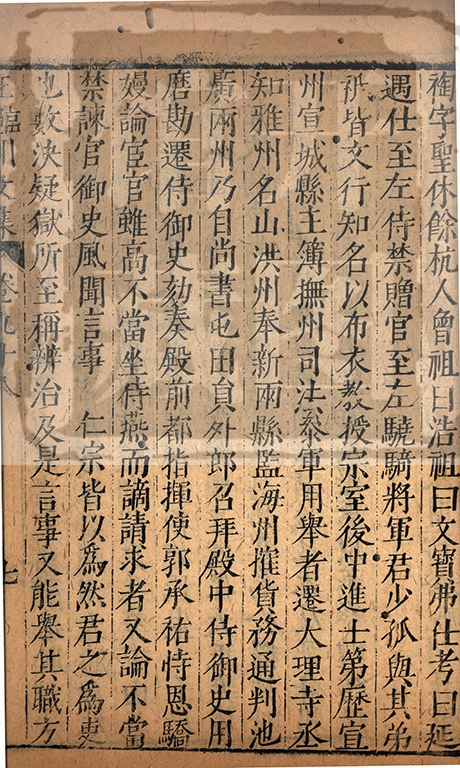 禂字聖休餘杭人曾祖曰浩祖曰文寶弗仕考曰延
遇仕至左侍禁贈官至左驍騎將軍君少孤與其弟
祇皆文行知名以布衣教授宗室後中進士第歷宣
州宣城縣主簿撫州司法叅軍用舉者遷大理寺丞
知雅州名山洪州奉新兩縣監海州搉貨務通判池
廣兩州乃自尚書屯田員外郎召拜殿中侍御史用
磨勘遷侍御史劾奏殿前都指揮使郭承祐恃恩驕
嫚論宦官雖高不當坐侍燕而謫請求者又論不當
禁諫官御史風聞言事 仁宗皆以爲然君之爲吏
也數決疑獄所至稱辨治及是言事又能舉其職方
王臨川文集 卷九十八 七